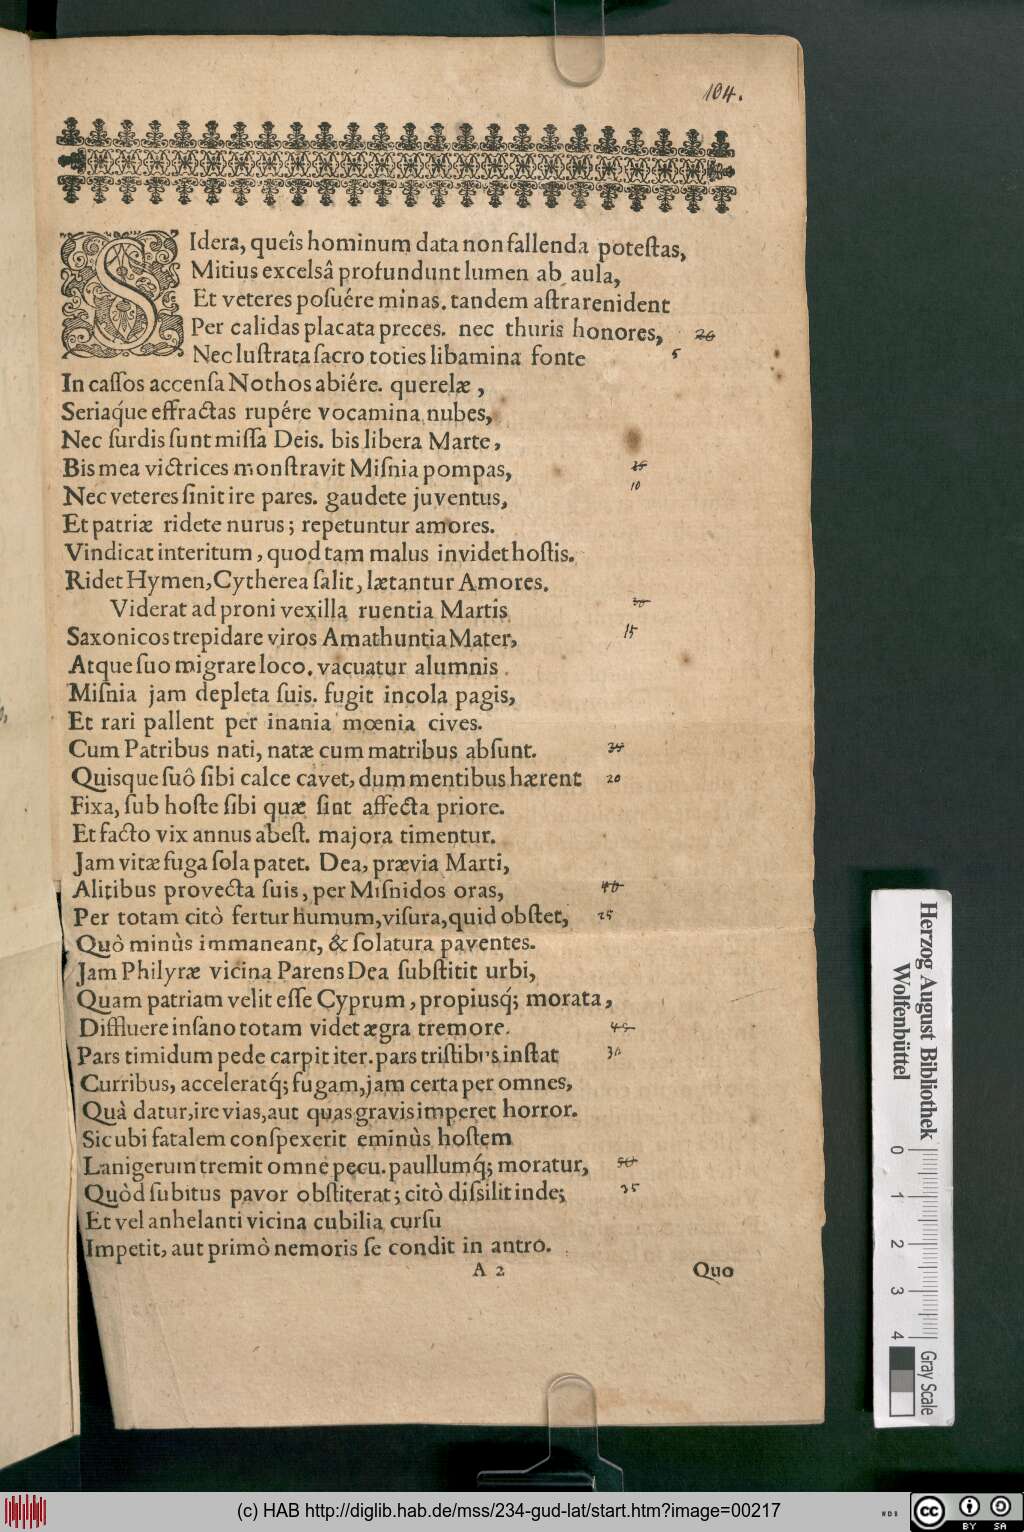 104.
SIdera, queîs hominum data non fallenda potestas,
Mitius excelsâ profundunt lumen ab aula,
Et veteres posuére minas. tandem astra renident
Per calidas placata preces. nec thuris honores, 26
Nec lustrata sacro toties libamina fonte 5
In cassos accensa Nothos abiére. querelæ,
Seriaq́ue effractas rupére vocamina nubes,
Nec surdis sunt missa Deis. bis libera Marte,
Bis mea victrices monstravit Misnia pompas,
Nec veteres sinit ire pares. gaudete juventus, 10
Et patriæ ridete nurus; repetuntur amores.
Vindicat interitum, quod tam malus invidet hostis.
Ridet Hymen, Cytherea salit, lætantur Amores.
Viderat ad proni vexilla ruentia Martis 30
Saxonicos trepidare viros Amathuntia Mater, 15
Atque suo migrare loco. vacuatur alumnis
Misnia jam depleta suis. fugit incola pagis,
Et rari pallent per inania mœnia cives.
Cum Patribus nati, natæ cum matribus absunt.
Quisque suô sibi calce cavet, dum mentibus hærent 20
Fixa, sub hoste sibi quæ sint affecta priore.
Et facto vix annus abest. majora timentur.
Jam vitæ fuga sola patet. Dea, prævia Marti,
Alitibus provecta suis, per Misnidos oras, 40
Per totam citò fertur humum, visura, quid obstet, 25
Quò minùs immaneant, & solatura paventes.
Jam Philyræ vicina Parens Dea substitit urbi,
Quam patriam velit esse Cyprum, propiusq́; morata,
Diffluere insano totam videt ægra tremore. 45
Pars timidum pede carpit iter. pars tristibus instat 30
Curribus, acceleratq́; fugam, jam certa per omnes,
Quà datur, ire vias, aut quas gravis imperet horror.
Sicubi fatalem conspexerit eminùs hostem
Lanigerum tremit omne pecu. paullumq́; moratur, 50
Quòd subitus pavor obstiterat; citò dissilit inde; 35
Et vel anhelanti vicina cubilia cursu
Impetit, aut primò nemoris se condit in antro.
A 2 Quo
Herzog August Bibliothek
Wolfenbüttel
0 1 2 3 4
Gray Scale
(c) HAB http://diglib.hab.de/mss/234-gud-lat/start.htm?image=00217
WDB
cc BY SA